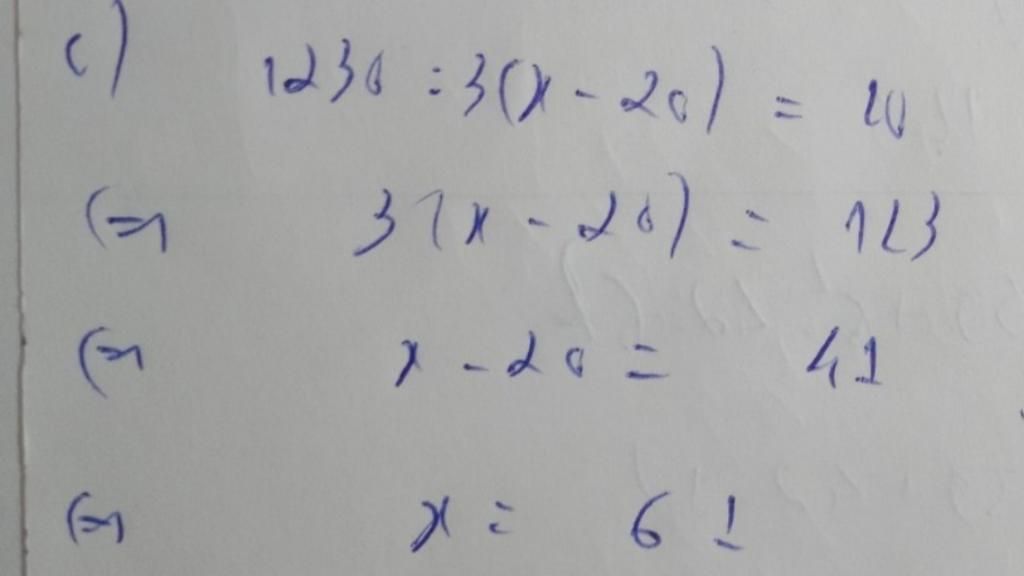 c) 1230 : 3(x - 20) = 10
<=> 3(x - 20) = 123
<=> x - 20 = 41
<=> x = 61